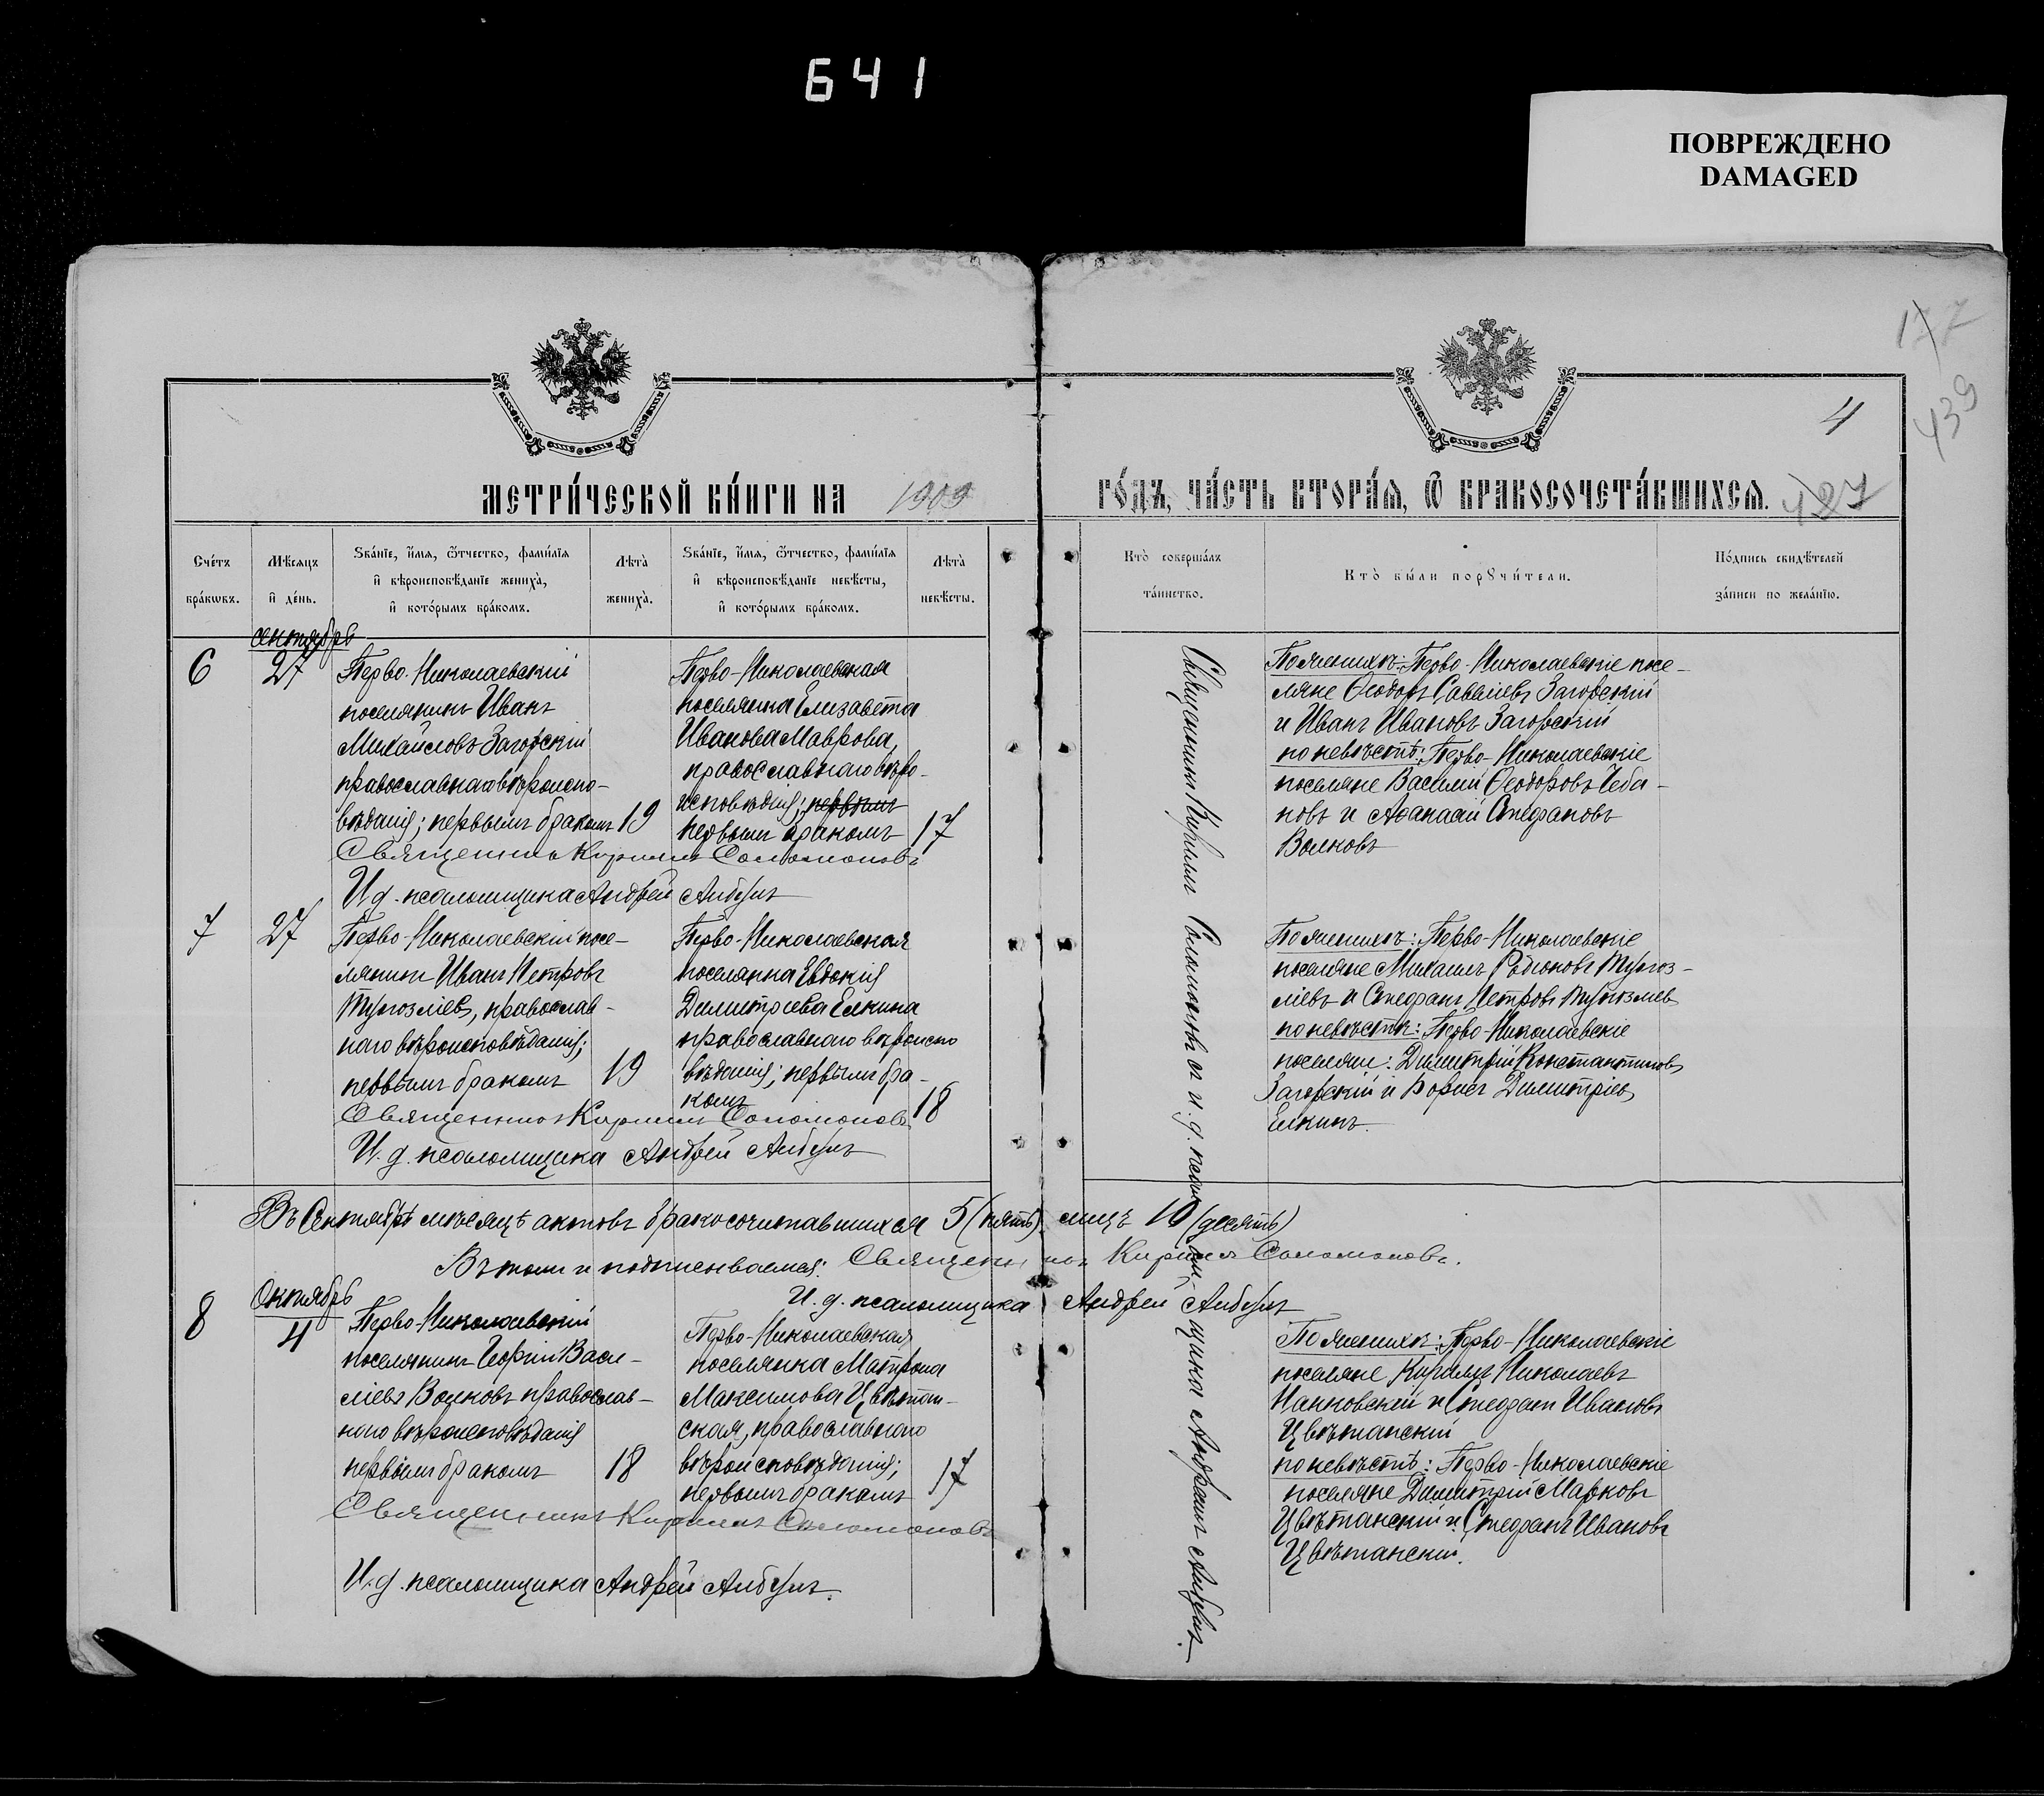 641
ПОВРЕЖДЕНО
DAMAGED
177
439
4
МЕТРИ́ЧЕСКОЙ КНИ́ГИ НА 1909
ГО́ДЪ, ЧА́СТЬ ВТОРА́Я, Ѿ БРАКОСОЧЕТА́ВШИХСЯ.
Сче́тъ
бра́кѡвъ.
Мѣ́сяцъ
и҆ де́нь.
Ѕва́нїе, и҆́мя, ѻ҆́тчество, фами́лїя
и҆ вѣроисповѣ́данїе жениха̀,
и҆ кото́рымъ бра́комъ.
Лѣ́та
жениха̀.
Ѕва́нїе, и҆́мя, ѻ҆́тчество, фами́лїя
и҆ вѣроисповѣ́данїе невѣ́сты,
и҆ кото́рымъ бра́комъ.
Лѣ́та
невѣ́сты.
Кто̀ соверша́лъ
та́инство.
Кто̀ бы́ли порꙋчи́тели.
По́дпись свидѣ́телей
за́писи по жела́нїю.
Сентябрь
6
27
Перво-Николаевскій
поселянинъ Иванъ
Михайловъ Загорскій
православнаго вѣроиспо-
вѣданія; первымъ бракомъ
19
Перво-Николаевская
поселянка Елизавета
Иванова Маврова,
православнаго вѣро-
исповѣданія; первымъ
первымъ бракомъ
17
Священникъ Кириллъ Соломоновъ
И. д. псаломщика Андрей Албулъ
По женихѣ: Перво-Николаевскіе посе-
ляне Ѳеодоръ Савеліевъ Загорскій
и Иванъ Ивановъ Загорскій
по невѣстѣ: Перво-Николаевскіе
поселяне Василій Ѳеодоровъ Чеба-
новъ и Аѳанасій Стефановъ
Волковъ
7
27
Перво-Николаевскій посе-
лянинъ Иванъ Петровъ
православ-
наго вѣроисповѣданія;
первымъ бракомъ
19
Перво-Николаевская
поселянка Евдокія
Димитріева Елкина
православнаго вѣроиспо
вѣданія; первымъ бра-
комъ
18
Священникъ Кириллъ Соломоновъ
И. д. псаломщика Андрей Албулъ
По женихѣ: Перво-Николаевскіе
поселяне Михаилъ Родіоновъ
и Стефанъ Петровъ
по невѣстѣ: Перво-Николаевскіе
поселяне: Димитрій Константиновъ
Загорскій и Борисъ Димитріевъ
Елкинъ.
Въ Сентябрѣ мѣсяцѣ актовъ бракосочитавшихся 5 (пять) лицъ 10 (десять)
Въ томъ и подписываемся: Священникъ Кириллъ Соломоновъ.
И. д. псаломщика Андрей Албулъ
Октябрь
8
4
Перво-Николаевскій
поселянинъ Георгій Васи-
ліевъ Волковъ православ-
наго вѣроисповѣданія
первымъ бракомъ
18
Перво-Николаевская
поселянка Матрона
Максимова Цвѣтан-
ская, православнаго
вѣроисповѣданія;
первымъ бракомъ
17
Священникъ Кириллъ Соломоновъ
И. д. псаломщика Андрей Албулъ.
По женихѣ: Перво-Николаевскіе
поселяне Кириллъ Николаевъ
и Стефанъ Ивановъ
Цвѣтанскій
по невѣстѣ: Перво-Николаевскіе
поселяне Димитрій Марковъ
Цвѣтанскій и Стефанъ Ивановъ
Цвѣтанскій.
Священникъ Кириллъ Соломоновъ съ и. д. псаломщика Андреемъ Албулъ.